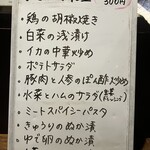 300円
・鶏の胡椒焼き
・白菜の浅漬け
・イカの中華炒め
・ポテトサラダ
・豚肉と人参のぽん酢炒め
・水菜とハムのサラダ
・ミートスパイシーパスタ
・きゅうりのぬか漬
・ゆで卵のぬか漬